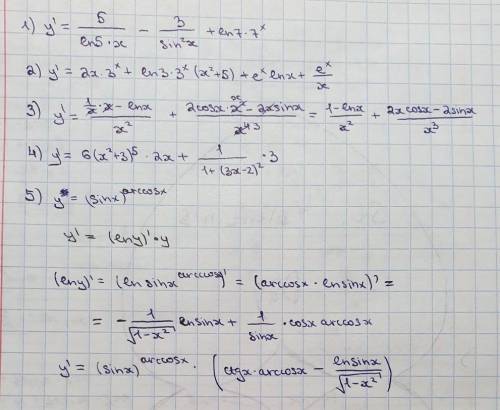 1) y' = 5/(ln5·x) − 3/sin²x + ln7·7ˣ
2) y' = 2x·3ˣ + ln3·3ˣ(x²+5) + eˣ lnx + eˣ/x
3) y' = (1/x·x − lnx)/x² + (2cosx·x² − 2xsinx)/x⁴ ³ = (1−lnx)/x² + (2xcosx − 2sinx)/x³
4) y = 6(x²+3)⁵·2x + 1/(1+(3x−2)²)·3
5) y = (sinx)^arccosx
y' = (lny)'·y
(lny)' = (ln sinx^arccosx)' = (arccosx · lnsinx)' =
= − 1/√(1−x²) lnsinx + 1/sinx · cosx arccosx
y' = (sinx)^arccosx · (ctgx·arccosx − lnsinx/√(1−x²))